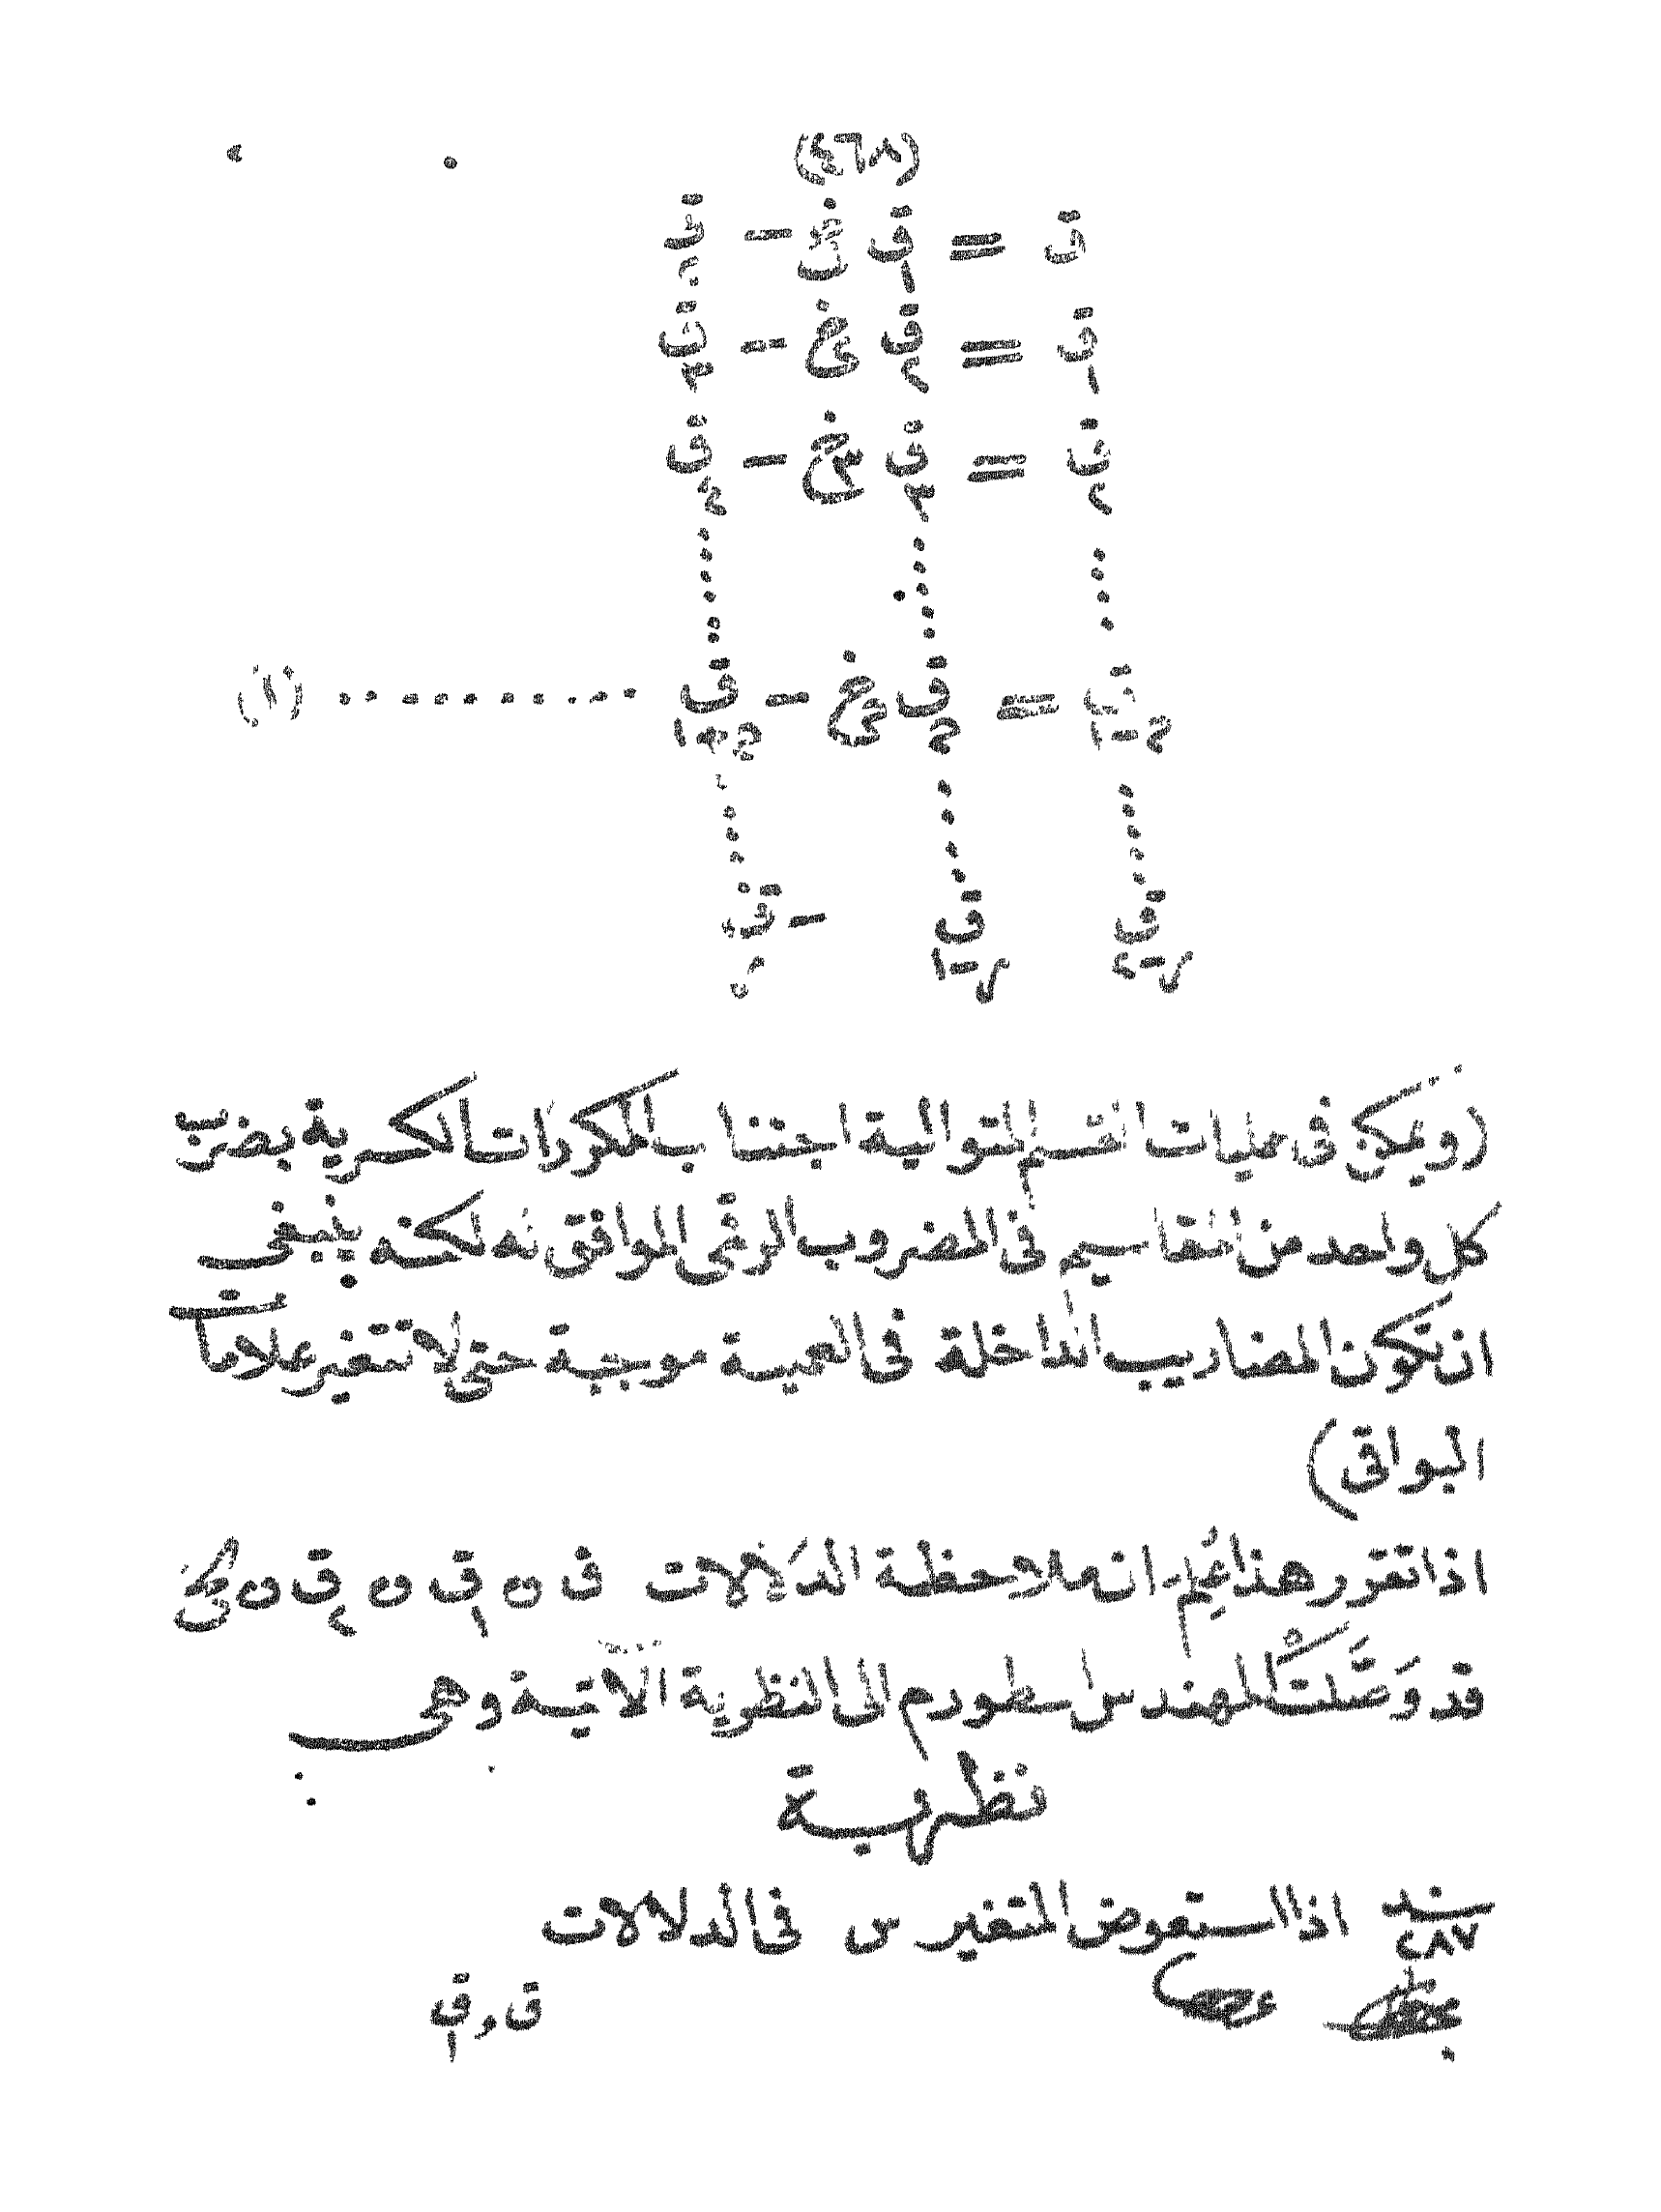 (٤٦٨)
ق = ق خ − ق
١ ٢
ق = ق خ − ق
١ ٢ ٢ ٣
ق = ق خ − ق
٢ ٣ ٣ ٤
ق = ق خ − ق .......... (١)
م−١ م م م+١
ق ق − ق
ر−٢ ر−١ ر
(ويمكن فى عمليات القسم المتوالية اجتناب المكررات الكسرية بضرب
كل واحد من المقاسيم فى المضروب الرقمى الموافق له لكنه ينبغى
ان تكون المضاريب الداخلة فى العمية موجبة حتى لا تتغير علامات
البواقى)
اذا تقرر هذا عُلم انه ملاحظة الدلالات ق و ق١ و ق٢ و
قد وَصَّلَتْ المهندس اسطورم الى النظرية الآتية وهى
نظرية
سند ٢٨٧ اذا استعوض المتغير س فى الدلالات
ق و ق١